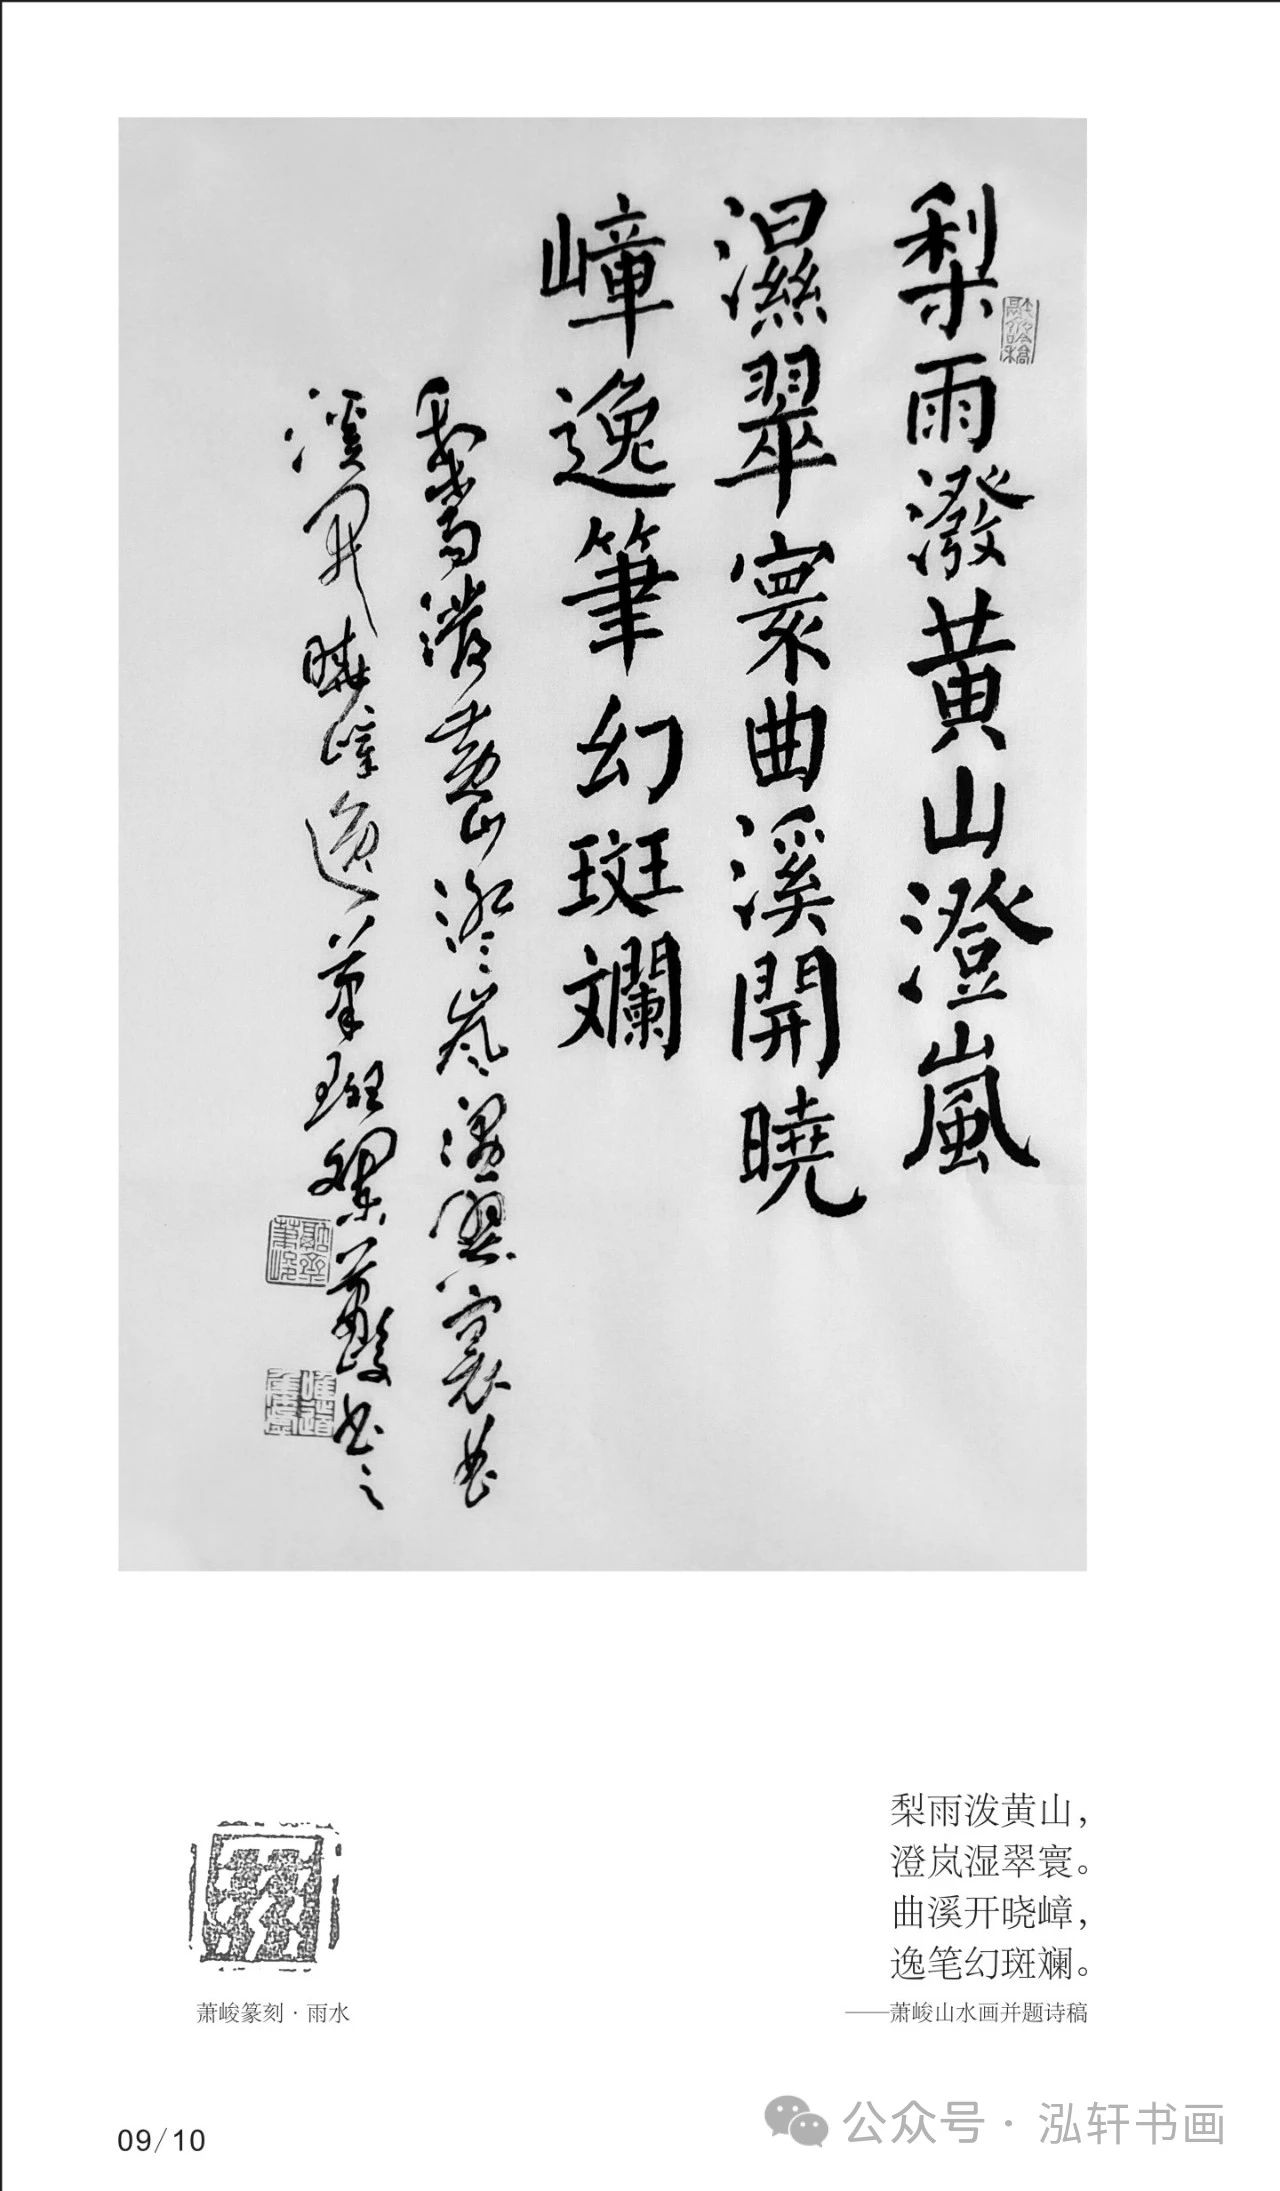 梨雨潑黄山澄嵐
濕翠寰曲溪開曉
嶂逸筆幻斑斕
梨雨潑黄山澄嵐濕翠寰曲
溪開曉嶂逸筆斑斕蕭峻書之
梨雨泼黄山，
澄岚湿翠寰。
曲溪开晓嶂，
逸笔幻斑斓。
——萧峻山水画并题诗稿
萧峻篆刻·雨水
09/10
公众号·泓轩书画